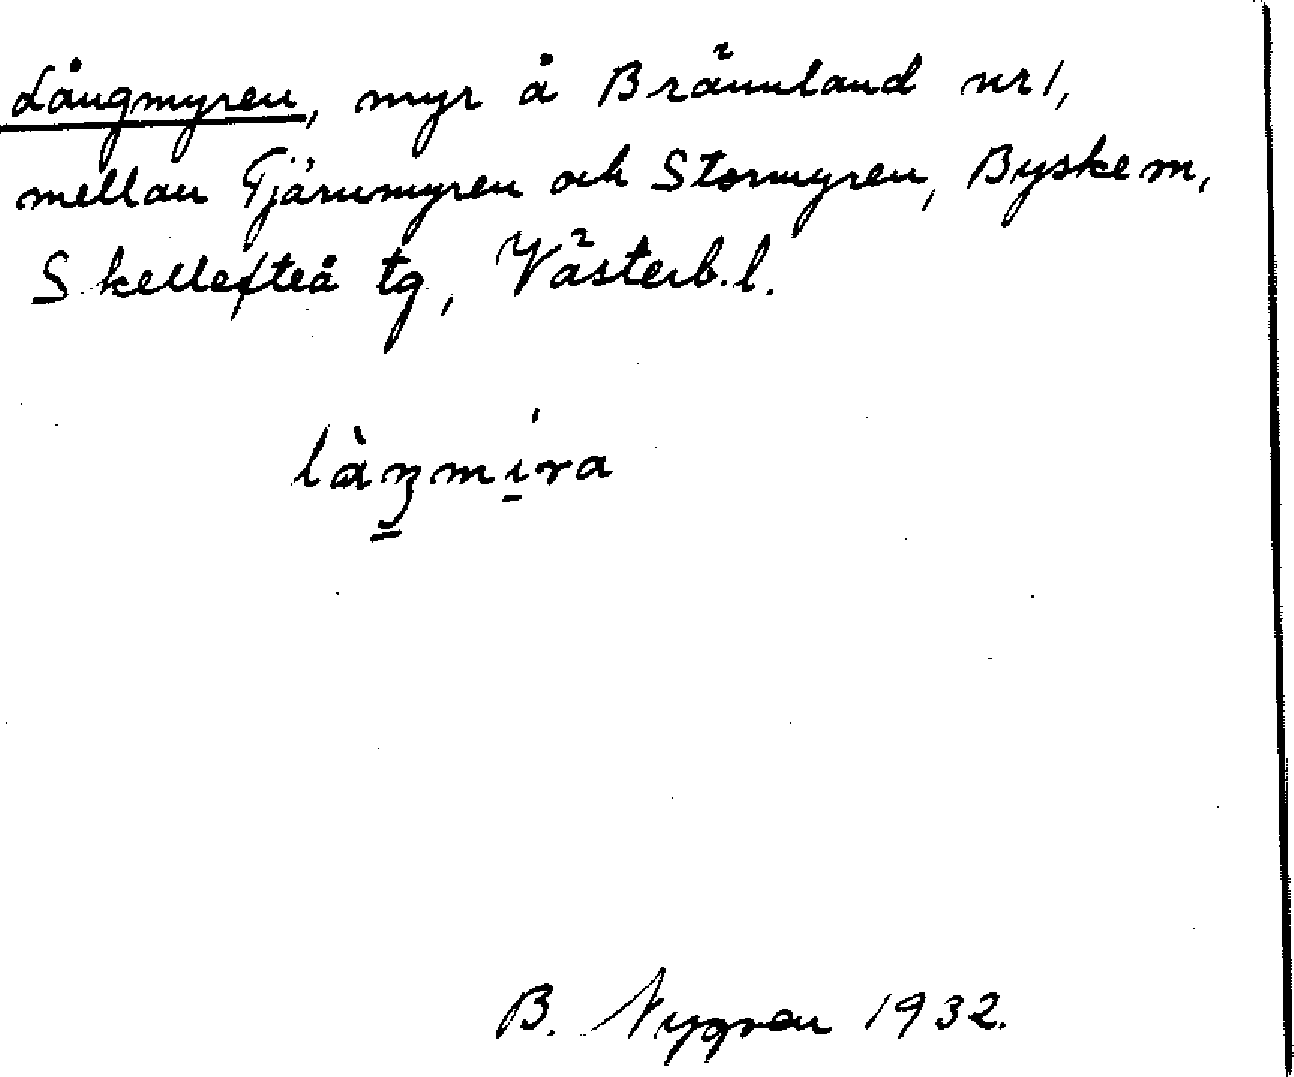 Långmyren, myr å Brännland nr 1,
mellan Tjärnmyren och Stormyren, Byske m,
Skellefteå tg, Västerb. l.
làŋmi̱ra
B. Nygren 1932.